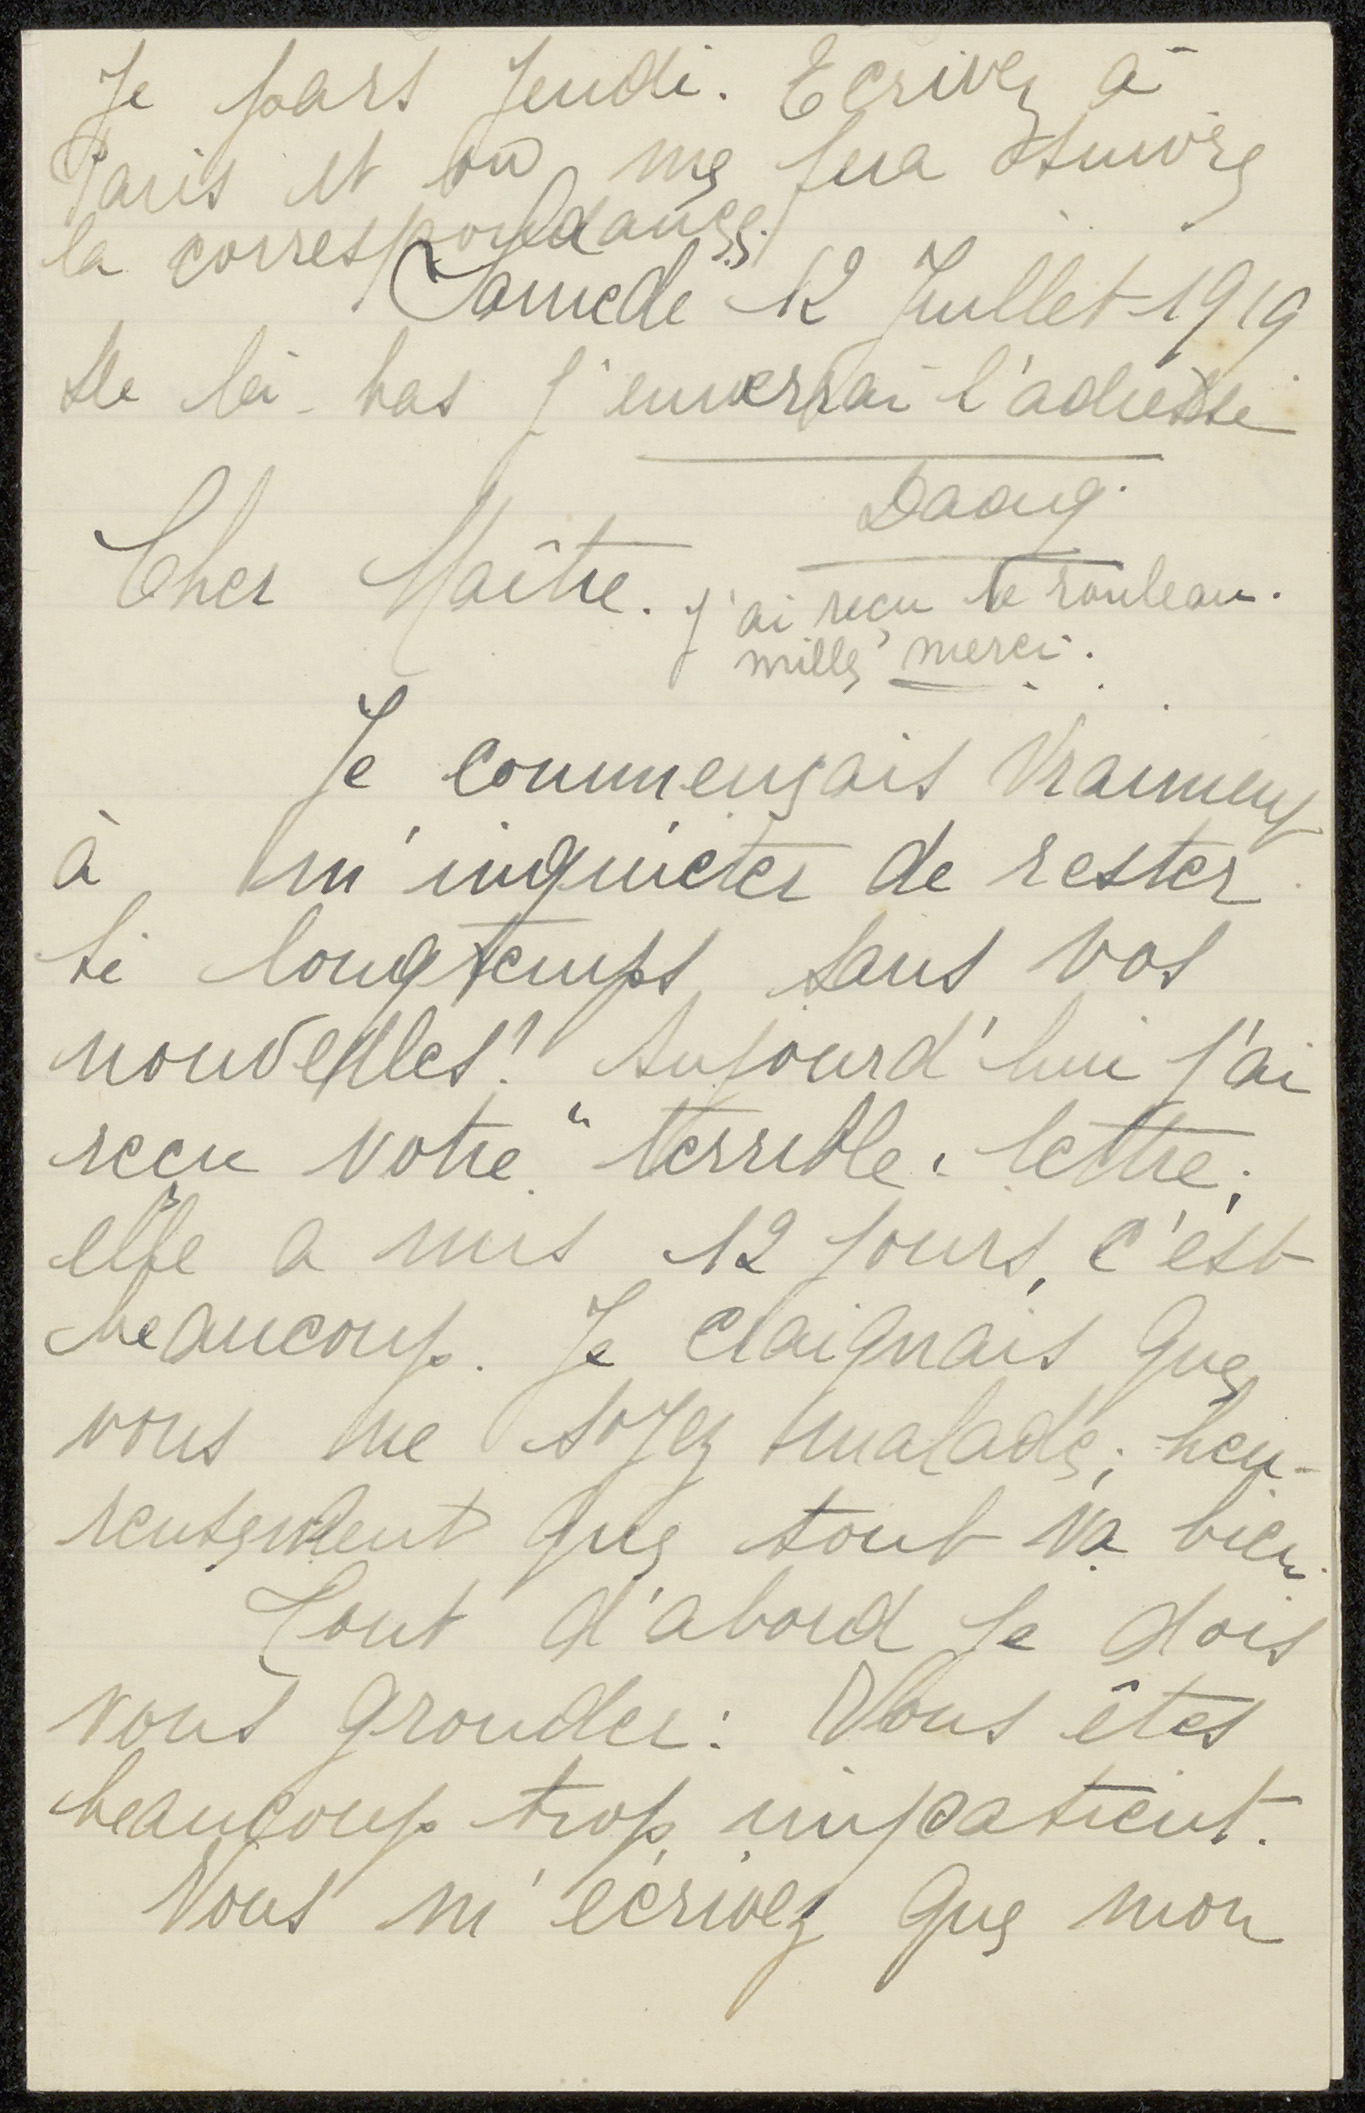 Je pars Jeudi. Ecrivez à
Paris et on me fera suivre
la correspondance.
Samedi 12 Juillet 1919
De là-bas j'enverrai l'adresse
Cher Maître.
J'ai reçu le rouleau.
mille merci.
Je commençais vraiment
à m'inquiéter de rester
si longtemps sans vos
nouvelles! Aujourd'hui j'ai
reçu votre "terrible" lettre;
elle a mis 12 jours, c'est
beaucoup. Je craignais que
vous ne soyez malade; heu-
reusement que tout va bien.
Tout d'abord je dois
vous gronder: Vous êtes
beaucoup trop impatient.
Vous m'écrivez que mon